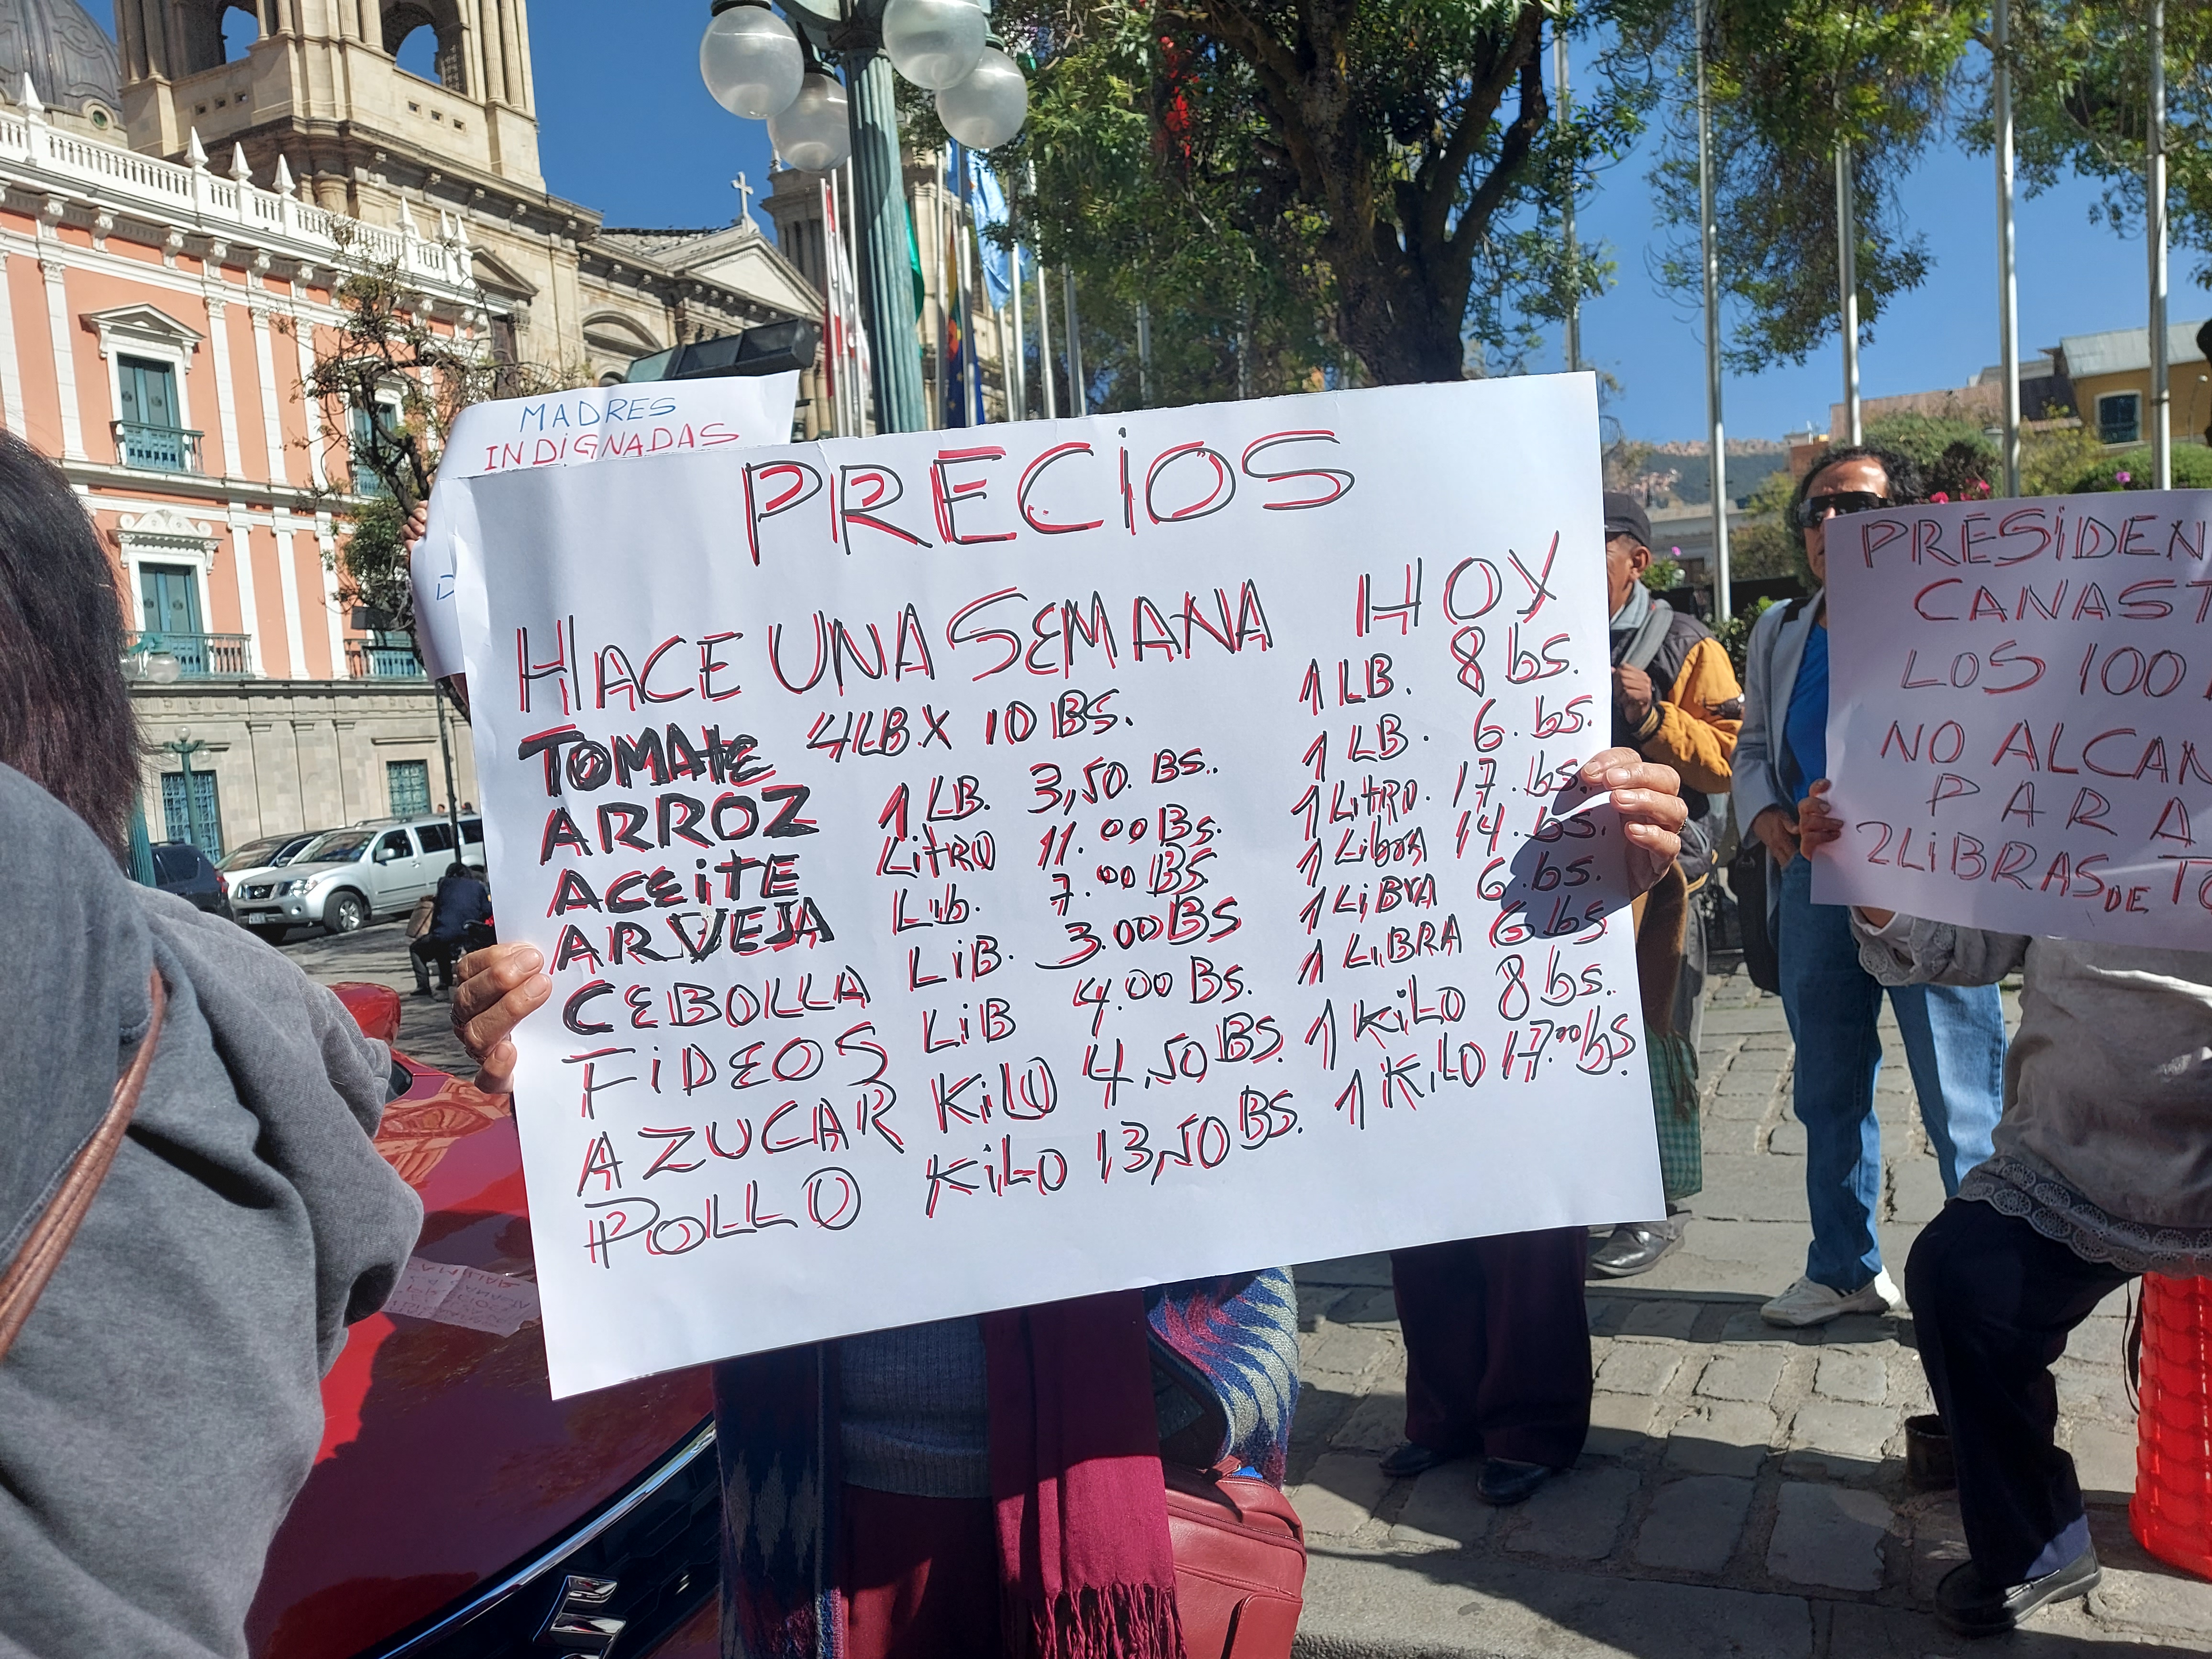 MADRES
INDIGNADAS
PRECIOS
HACE UNA SEMANA HOY
TOMATE 4LB X 10 BS. 1 LB. 8 bs.
ARROZ 1 LB. 3,50 BS. 1 LB. 6. bs.
ACEITE LITRO 11.00 BS. 1 LITRO. 17. bs.
ARVEJA Lib. 7.00 BS 1 Libra 14. bs.
CEBOLLA LIB. 3.00 BS 1 LIBRA 6. bs.
FIDEOS LIB 4.00 BS. 1 LIBRA 6 bs.
AZUCAR KILO 4,50 BS. 1 KILO 8 bs.
POLLO KILO 13,50 BS. 1 KILO 17.00 bs
PRESIDEN
CANAST
LOS 100
NO ALCAN
PARA
2 LIBRAS DE TO